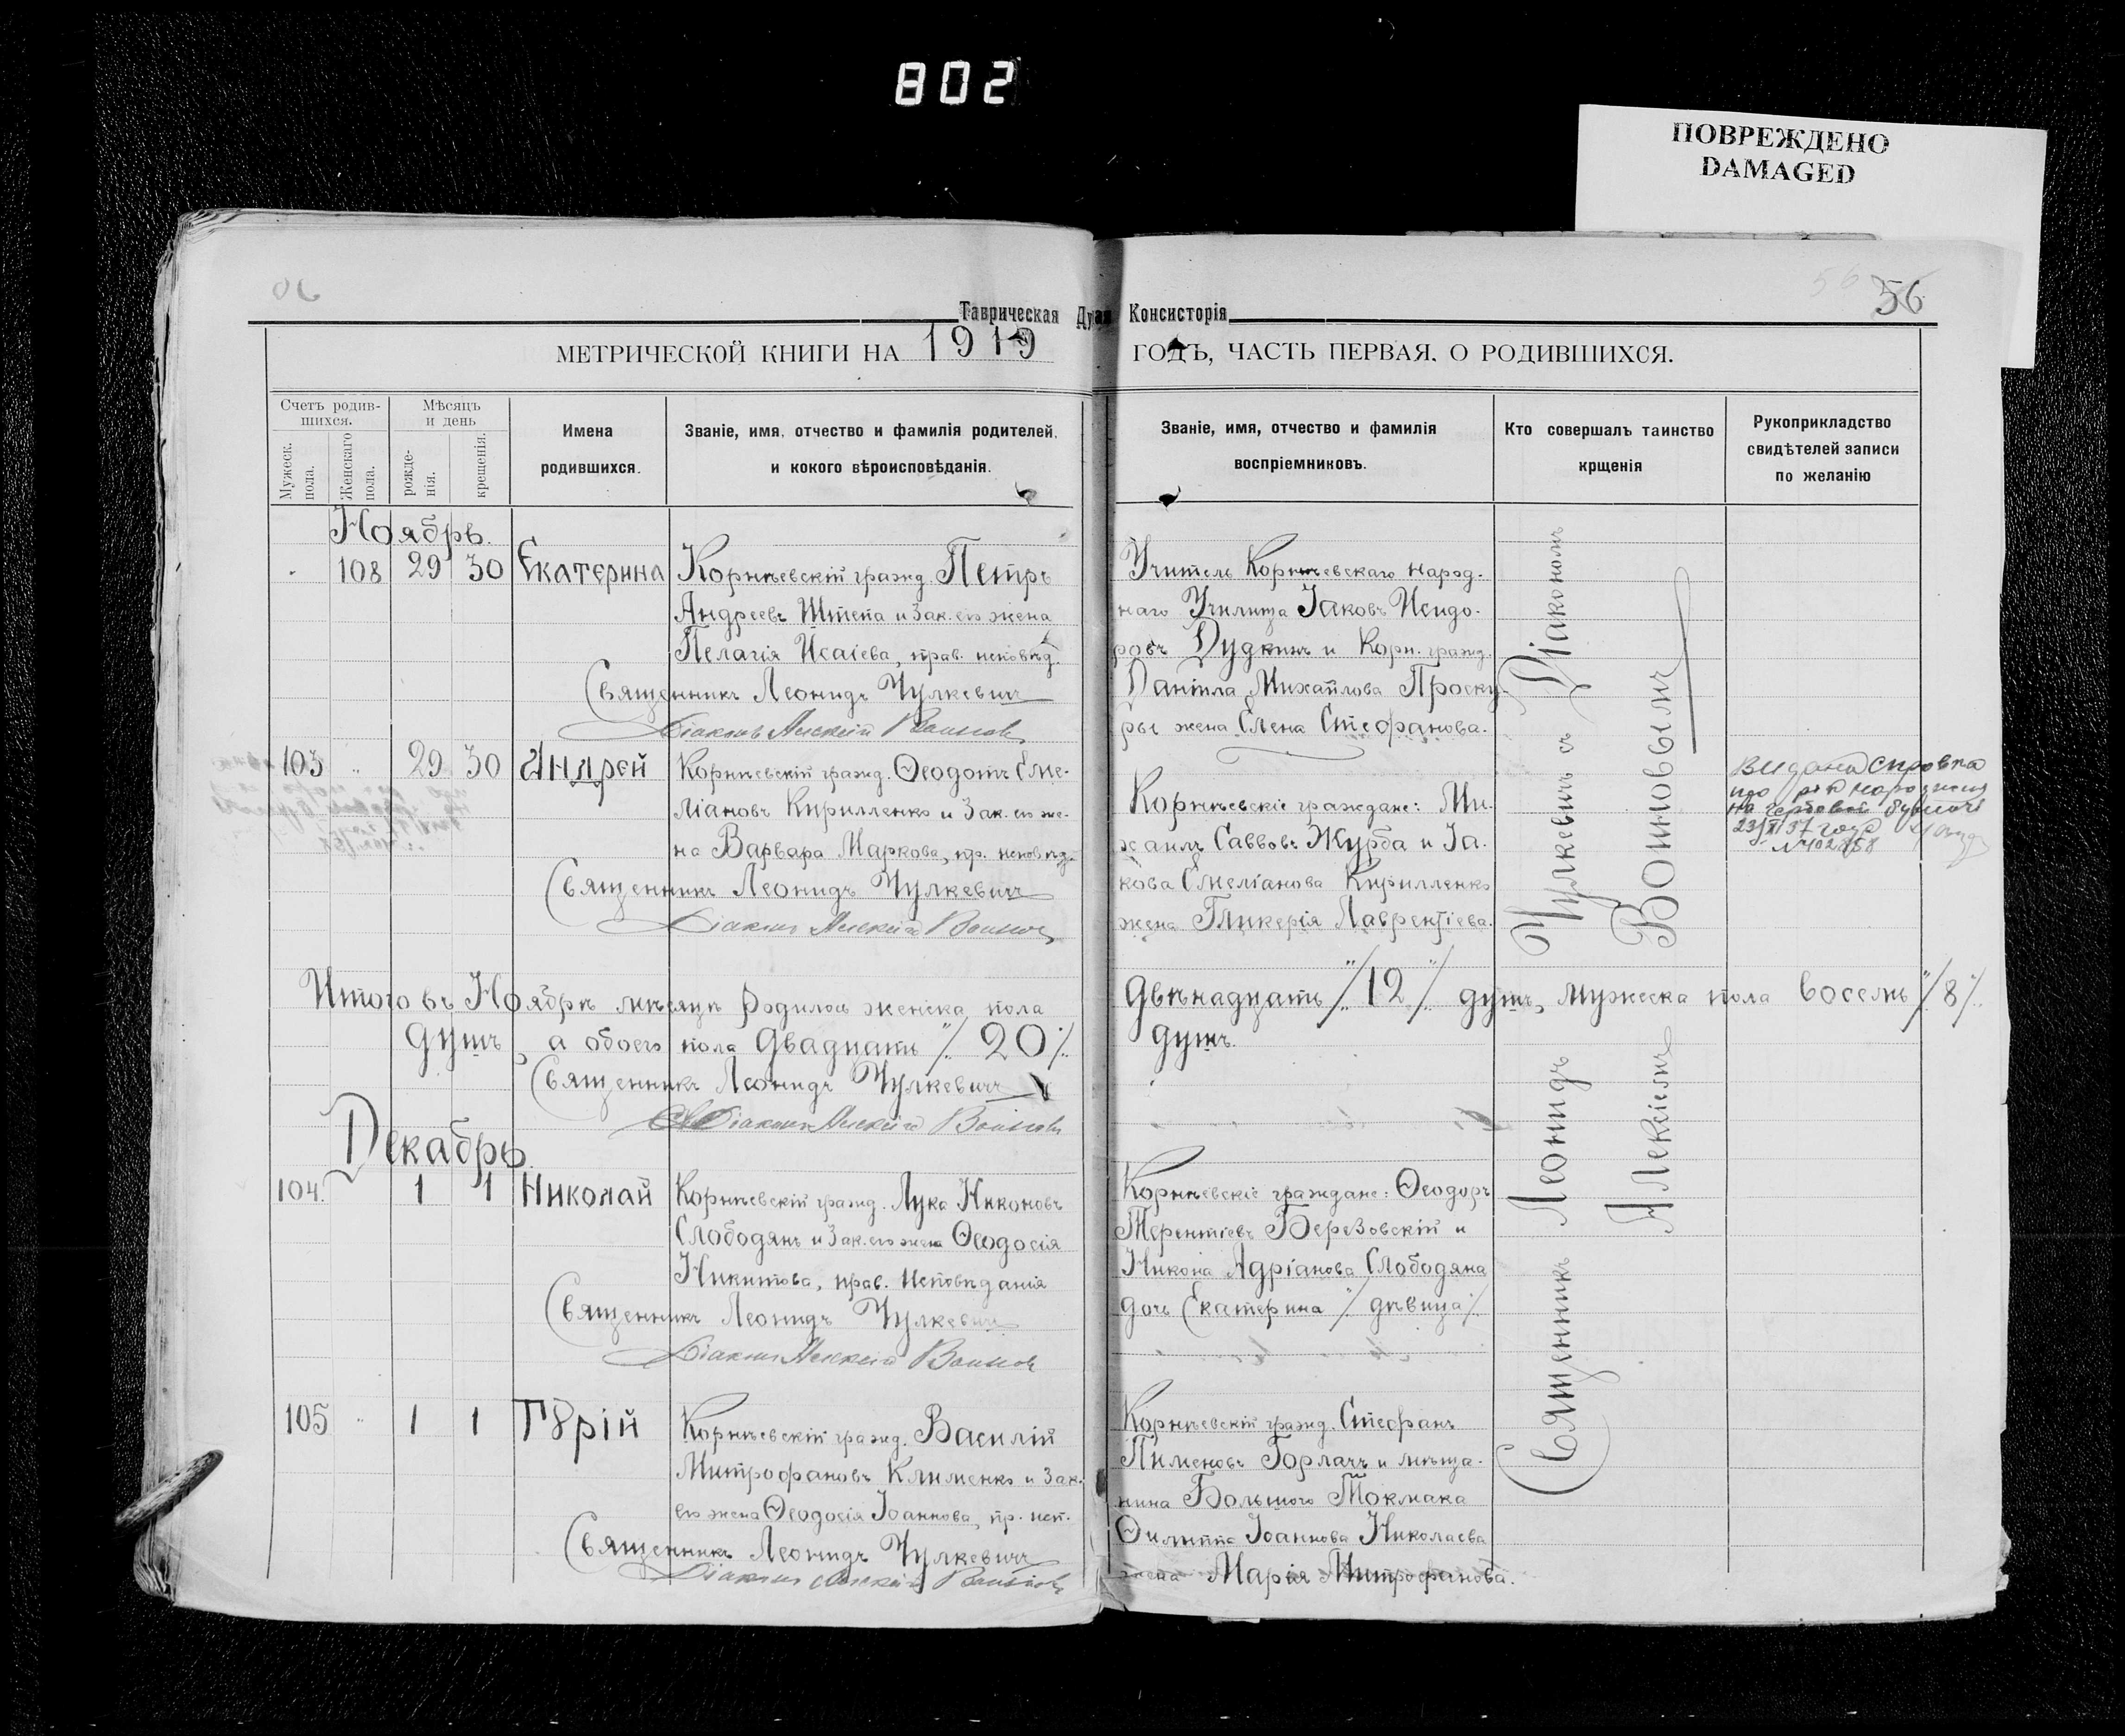 802
ПОВРЕЖДЕНО
DAMAGED
56
Таврическая Дух Консисторія
МЕТРИЧЕСКОЙ КНИГИ НА 1919 ГОДЪ, ЧАСТЬ ПЕРВАЯ. О РОДИВШИХСЯ.
Счетъ родив-
шихся.
Мужеск.
пола.
Женскаго
пола.
Мѣсяцъ
и день
рожде-
нія.
крещенія.
Имена
родившихся.
Званіе, имя, отчество и фамилія родителей,
и кокого вѣроисповѣданія.
Званіе, имя, отчество и фамилія
воспріемниковъ.
Кто совершалъ таинство
крщенія
Рукоприкладство
свидѣтелей записи
по желанію
Ноябрь.
108 29 30 Екатерина
Корнѣевскій гражд. Петръ
Андреевъ Штепа и Зак. его жена
Пелагія Исаіева, прав. исповѣд.
Священникъ Леонидъ Чулкевичъ
Діаконъ Алексій Воиновъ
Учитель Корнѣевскаго народ-
наго Училища Іаковъ Исидо-
ровъ Дудкинъ и Корн. гражд.
Даніила Михайлова Проску-
ры жена Елена Стефанова.
103 " 29 30 Андрей
Корнѣевскій гражд. Ѳеодотъ Еме-
ліановъ Кирилленко и Зак. его же-
на Варвара Маркова, пр. исповѣд.
Священникъ Леонидъ Чулкевичъ
Діаконъ Алексій Воиновъ
Корнѣевскіе граждане: Ми-
хаилъ Саввовъ Журба и Іа-
кова Емеліанова Кирилленко
жена Гликерія Лаврентіева.
Видана справка
про рік народження
на гербовой бумаге
23/ 37 года
Итого въ Ноябрѣ мѣсяцѣ родилось женска пола двѣнадцать /"12"/ душъ, мужеска пола восемь /"8"/.
душъ, а обоего пола двадцать /"20"/. душъ.
Священникъ Леонидъ Чулкевичъ
Діаконъ Алексій Воиновъ
Декабрь.
104. 1 1 Николай
Корнѣевскій гражд. Лука Никоновъ
Слободянъ и Зак. его жена Ѳеодосія
Никитова, прав. исповѣданія
Священникъ Леонидъ Чулкевичъ
Діаконъ Алексій Воиновъ
Корнѣевскіе граждане: Ѳеодоръ
Терентіевъ Березовскій и
Никона Адріанова Слободяна
дочь Екатерина /"дѣвица"/
105 " 1 1 Гꙋрій
Корнѣевскій гражд. Василій
Митрофановъ Клименко и Зак.
его жена Ѳеодосія Іоаннова, пр. исп.
Священникъ Леонидъ Чулкевичъ
Діаконъ Алексій Воиновъ
Корнѣевскій гражд. Стефанъ
Пименовъ Горлачъ и мѣща-
нина Большого Токмака
Филиппа Іоаннова Николаева
жена Марія Митрофанова.
Священникъ Леонидъ Чулкевичъ съ Діакономъ
Алексіемъ Воиновымъ